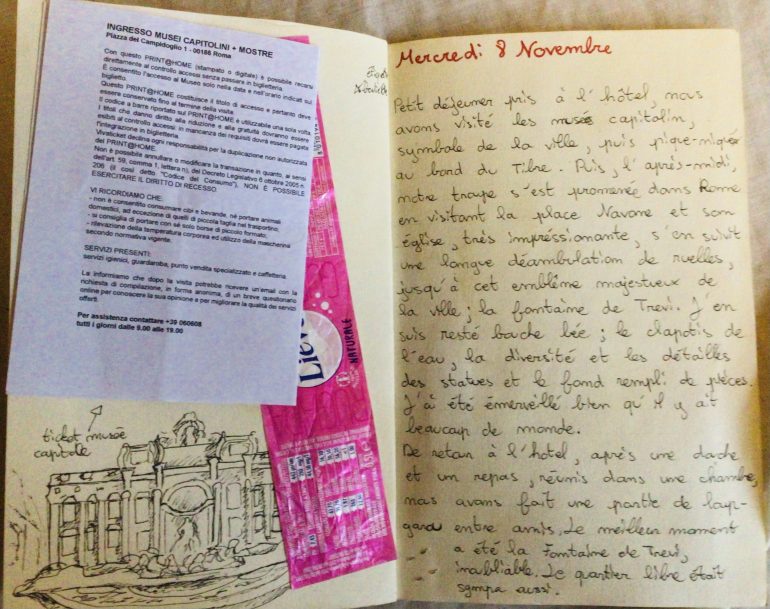 INGRESSO MUSEI CAPITOLINI + MOSTRE
Piazza del Campidoglio 1 - 00186 Roma
Con questo PRINT@HOME (stampato o digitale) è possibile recarsi
direttamente al controllo accessi senza passare in biglietteria.
È consentito l'accesso al Museo solo nella data e nell'orario indicati sul
biglietto.
Questo PRINT@HOME costituisce il titolo di accesso e pertanto deve
essere conservato fino al termine della visita.
Il codice a barre riportato sul PRINT@HOME è utilizzabile una sola volta.
I titoli che danno diritto alla riduzione e alla gratuità dovranno essere
esibiti al controllo accessi: in mancanza dei requisiti dovrà essere pagata
l'integrazione in biglietteria.
Vivaticket declina ogni responsabilità per la duplicazione non autorizzata
del PRINT@HOME.
Non è possibile annullare o modificare la transazione in quanto, ai sensi
dell'art 59, comma 1, lettera n), del Decreto Legislativo 6 ottobre 2005 n.
206 (il così detto "Codice del Consumo"), NON È POSSIBILE
ESERCITARE IL DIRITTO DI RECESSO.
VI RICORDIAMO CHE:
- non è consentito consumare cibi e bevande, né portare animali
domestici, ad eccezione di quelli di piccola taglia nel trasportino.
- si consiglia di portare con sé solo borse di piccolo formato;
- rilevazione della temperatura corporea ed utilizzo della mascherina
secondo normativa vigente.
SERVIZI PRESENTI:
servizi igienici, guardaroba, punto vendita specializzato e caffetteria.
La informiamo che dopo la visita potrebbe ricevere un'email con la
richiesta di compilazione, in forma anonima, di un breve questionario
online per conoscere la sua opinione e per migliorare la qualità dei servizi
offerti.
Per assistenza contattare +39 060608
tutti i giorni dalle 9.00 alle 19.00
Lieve
NATURALE
ticket musée
capitole
Mercredi 8 Novembre
Petit déjeuner pris à l'hôtel, nous
avons visité les musée capitolin,
symbole de la ville, puis pique-niqué
au bord du Tibre. Puis, l'après-midi,
notre troupe s'est promenée dans Rome
en visitant la place Navone et son
église, très impréssionante, s'en suivit
une longue déambulation de ruelles,
jusqu'à cet emblême majestueux de
la ville ; la fontaine de Trevi. J'en
suis resté bouche bée ; le clapotis de
l'eau, la diversité et les détailles
des statues et le fond rempli de pièces.
J'ai été émerveillé bien qu'il y ait
beaucoup de monde.
De retour à l'hotel, après une douche
et un repas, réunis dans une chambre,
nous avons fait une partie de loup-
garou entre amis. Le meilleur moment
a été la Fontaine de Trevi,
inoubliable. Le quartier libre était
sympa aussi.